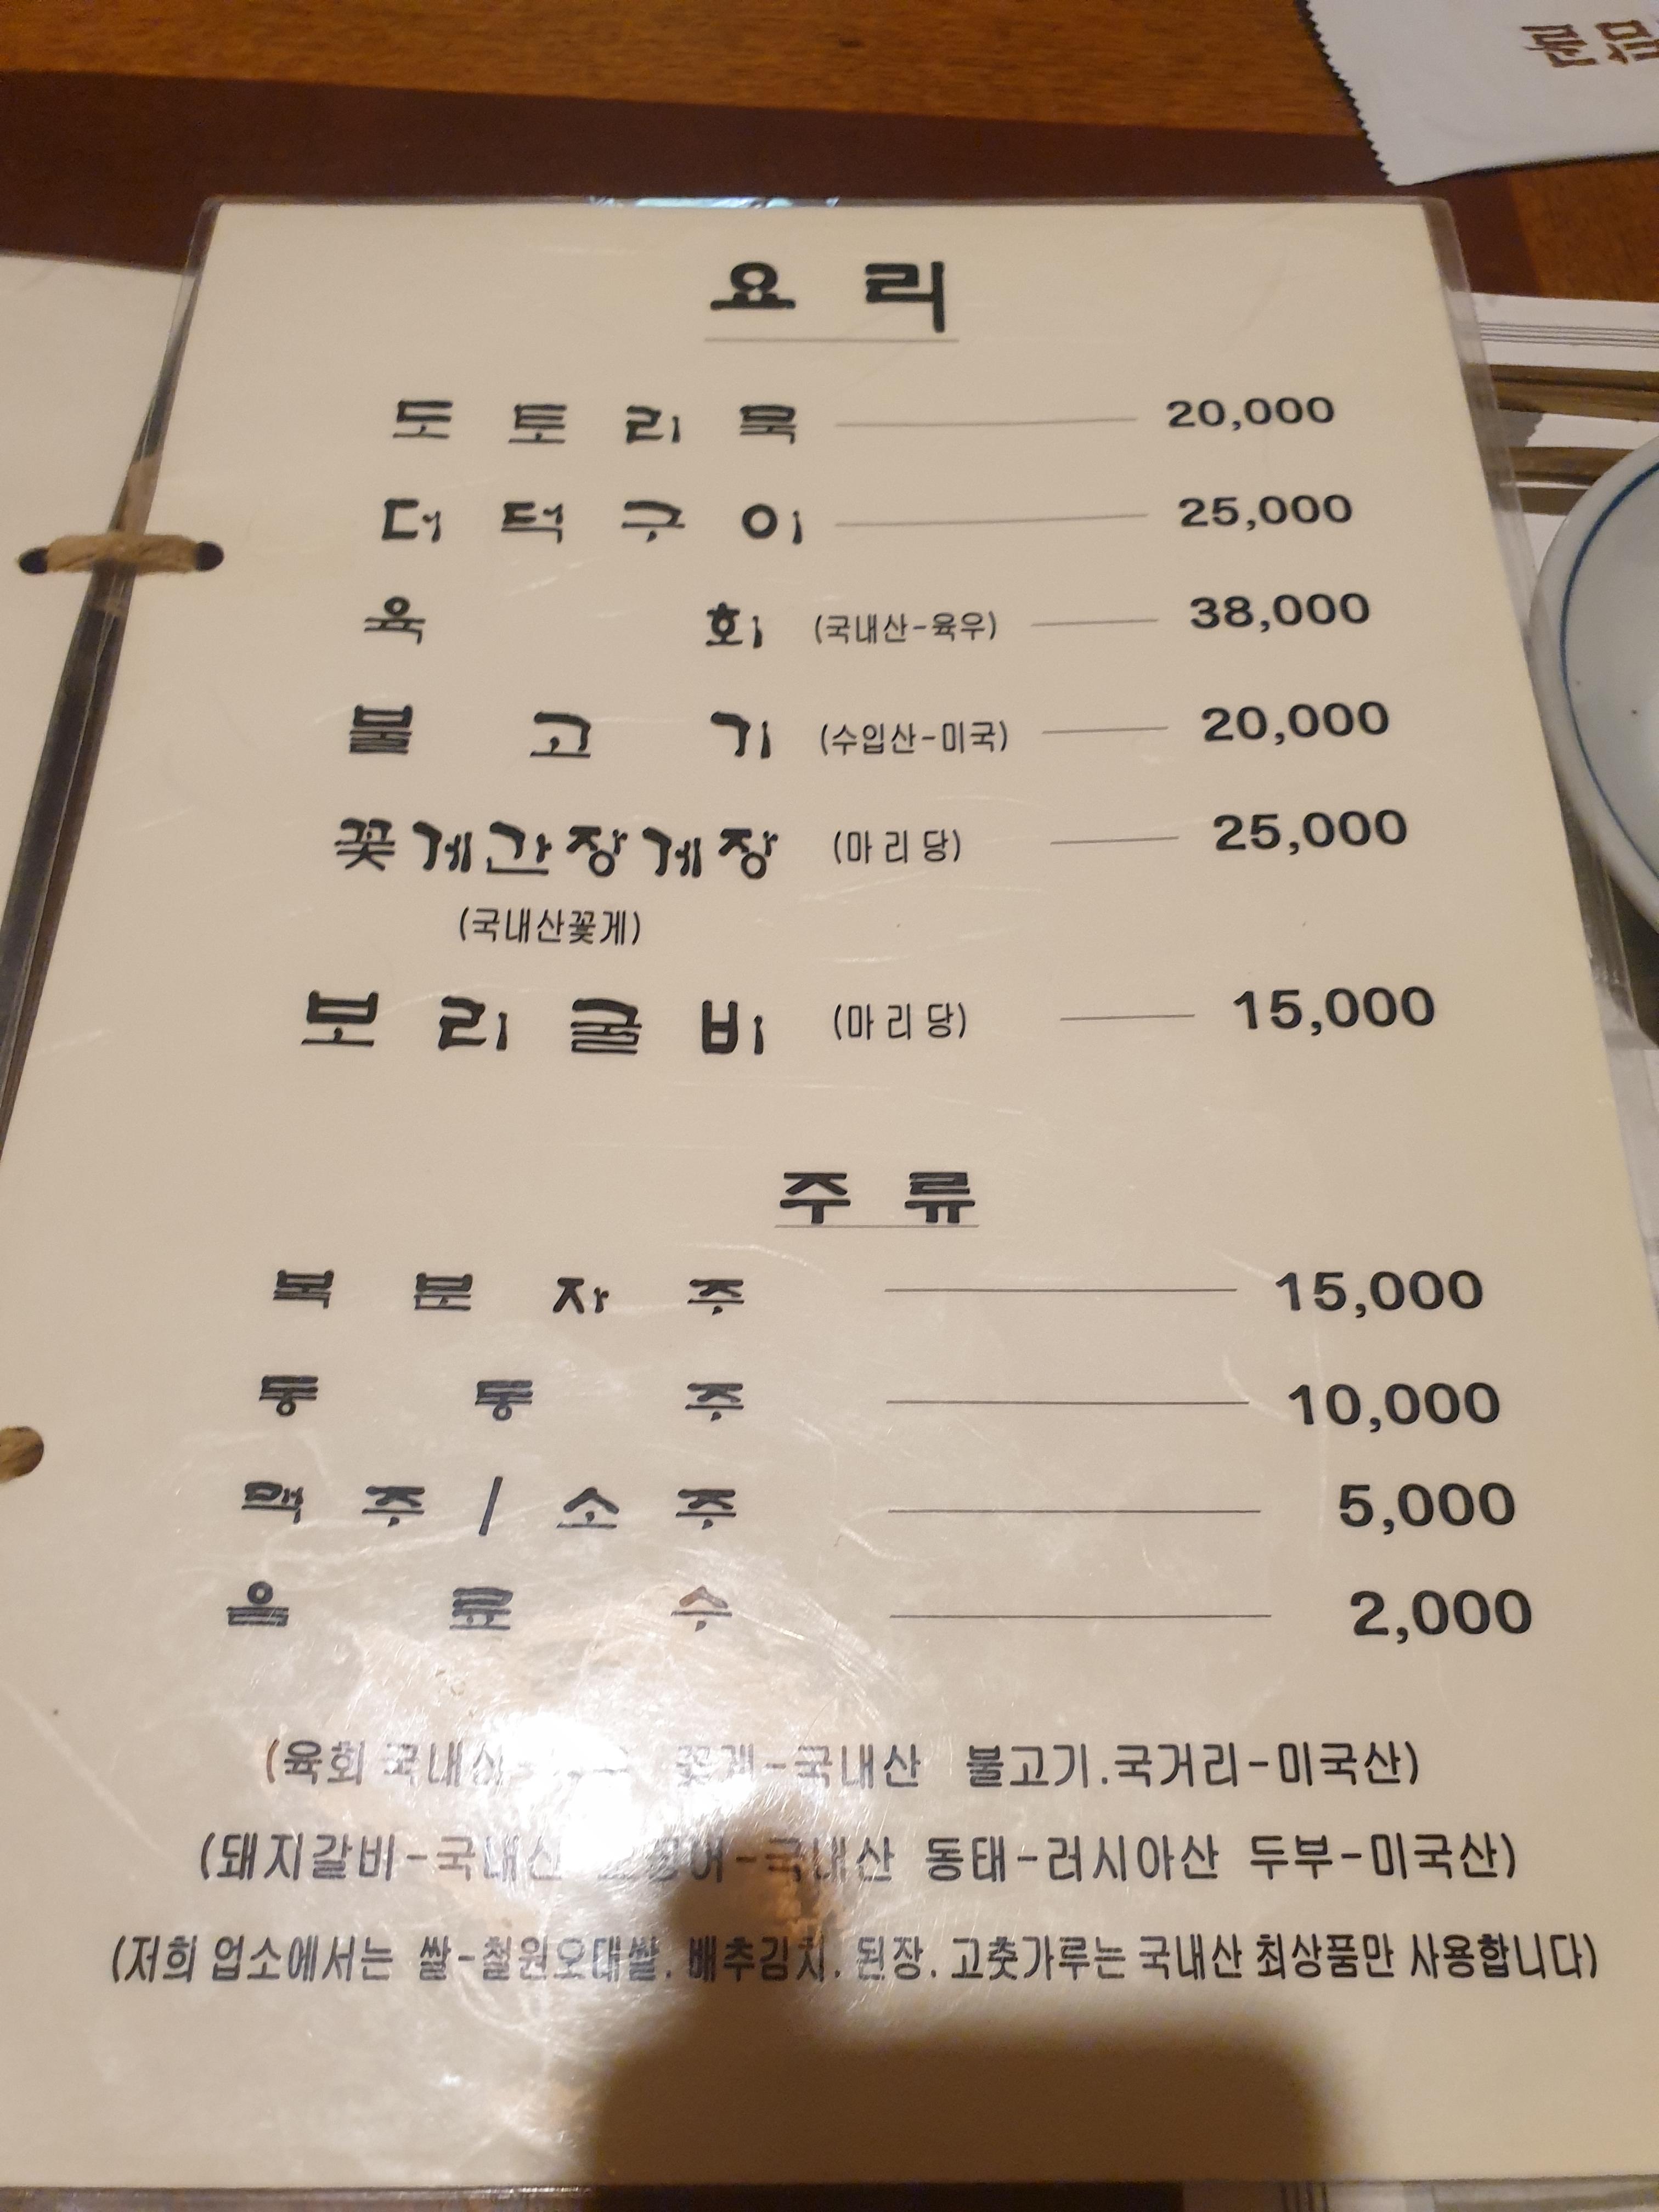 요 리
도 토 리 묵 20,000
더 덕 구 이 25,000
육 회 (국내산-육우) 38,000
불 고 기 (수입산-미국) 20,000
꽃게간장게장 (마리당) 25,000
(국내산꽃게)
보 리 굴 비 (마리당) 15,000
주 류
복 분 자 주 15,000
동 동 주 10,000
맥 주 / 소 주 5,000
음 료 수 2,000
(육회 국내산- 꽃게-국내산 불고기.국거리-미국산)
(돼지갈비-국내산 국내산 동태-러시아산 두부-미국산)
(저희 업소에서는 쌀-철원오대쌀. 배추김치. 된장. 고춧가루는 국내산 최상품만 사용합니다)